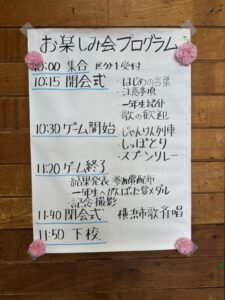 お楽しみ会プログラム
10:00 集合 区分け受付
10:15 開会式 ・はじめの言葉
・注意事項
・一年生紹介
・歌の歓迎
10:30 ゲーム開始 ・じゃんけん列車
・しっぽとり
・スプーンリレー
11:20 ゲーム終了
結果発表 参加賞配布
一年生へがんばった賞メダル
記念撮影
11:40 閉会式 横浜市歌斉唱
11:50 下校